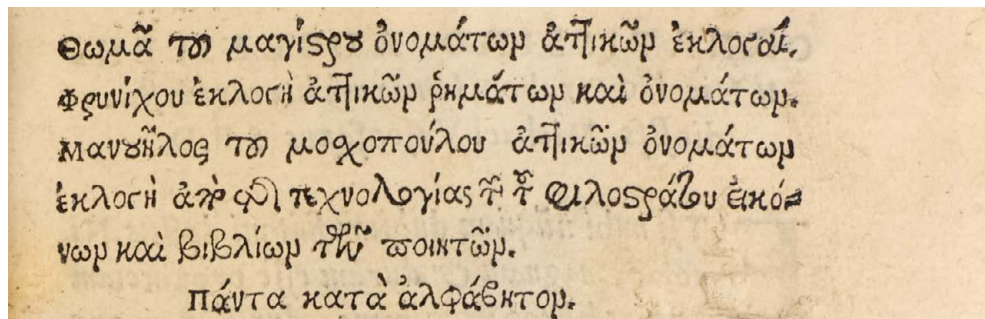 Θωμᾶ τοῦ μαγίστρου ὀνομάτων ἀττικῶν ἐκλογαί.
Φρυνίχου ἐκλογὴ ἀττικῶν ῥημάτων καὶ ὀνομάτων.
Μανουῆλος τοῦ μοσχοπούλου ἀττικῶν ὀνομάτων
ἐκλογὴ ἀπὸ τεχνολογίας τῶν φιλοστράτου εἰκό-
νων καὶ βιβλίων τῶν ποιητῶν.
Πάντα κατὰ ἀλφάβητον.